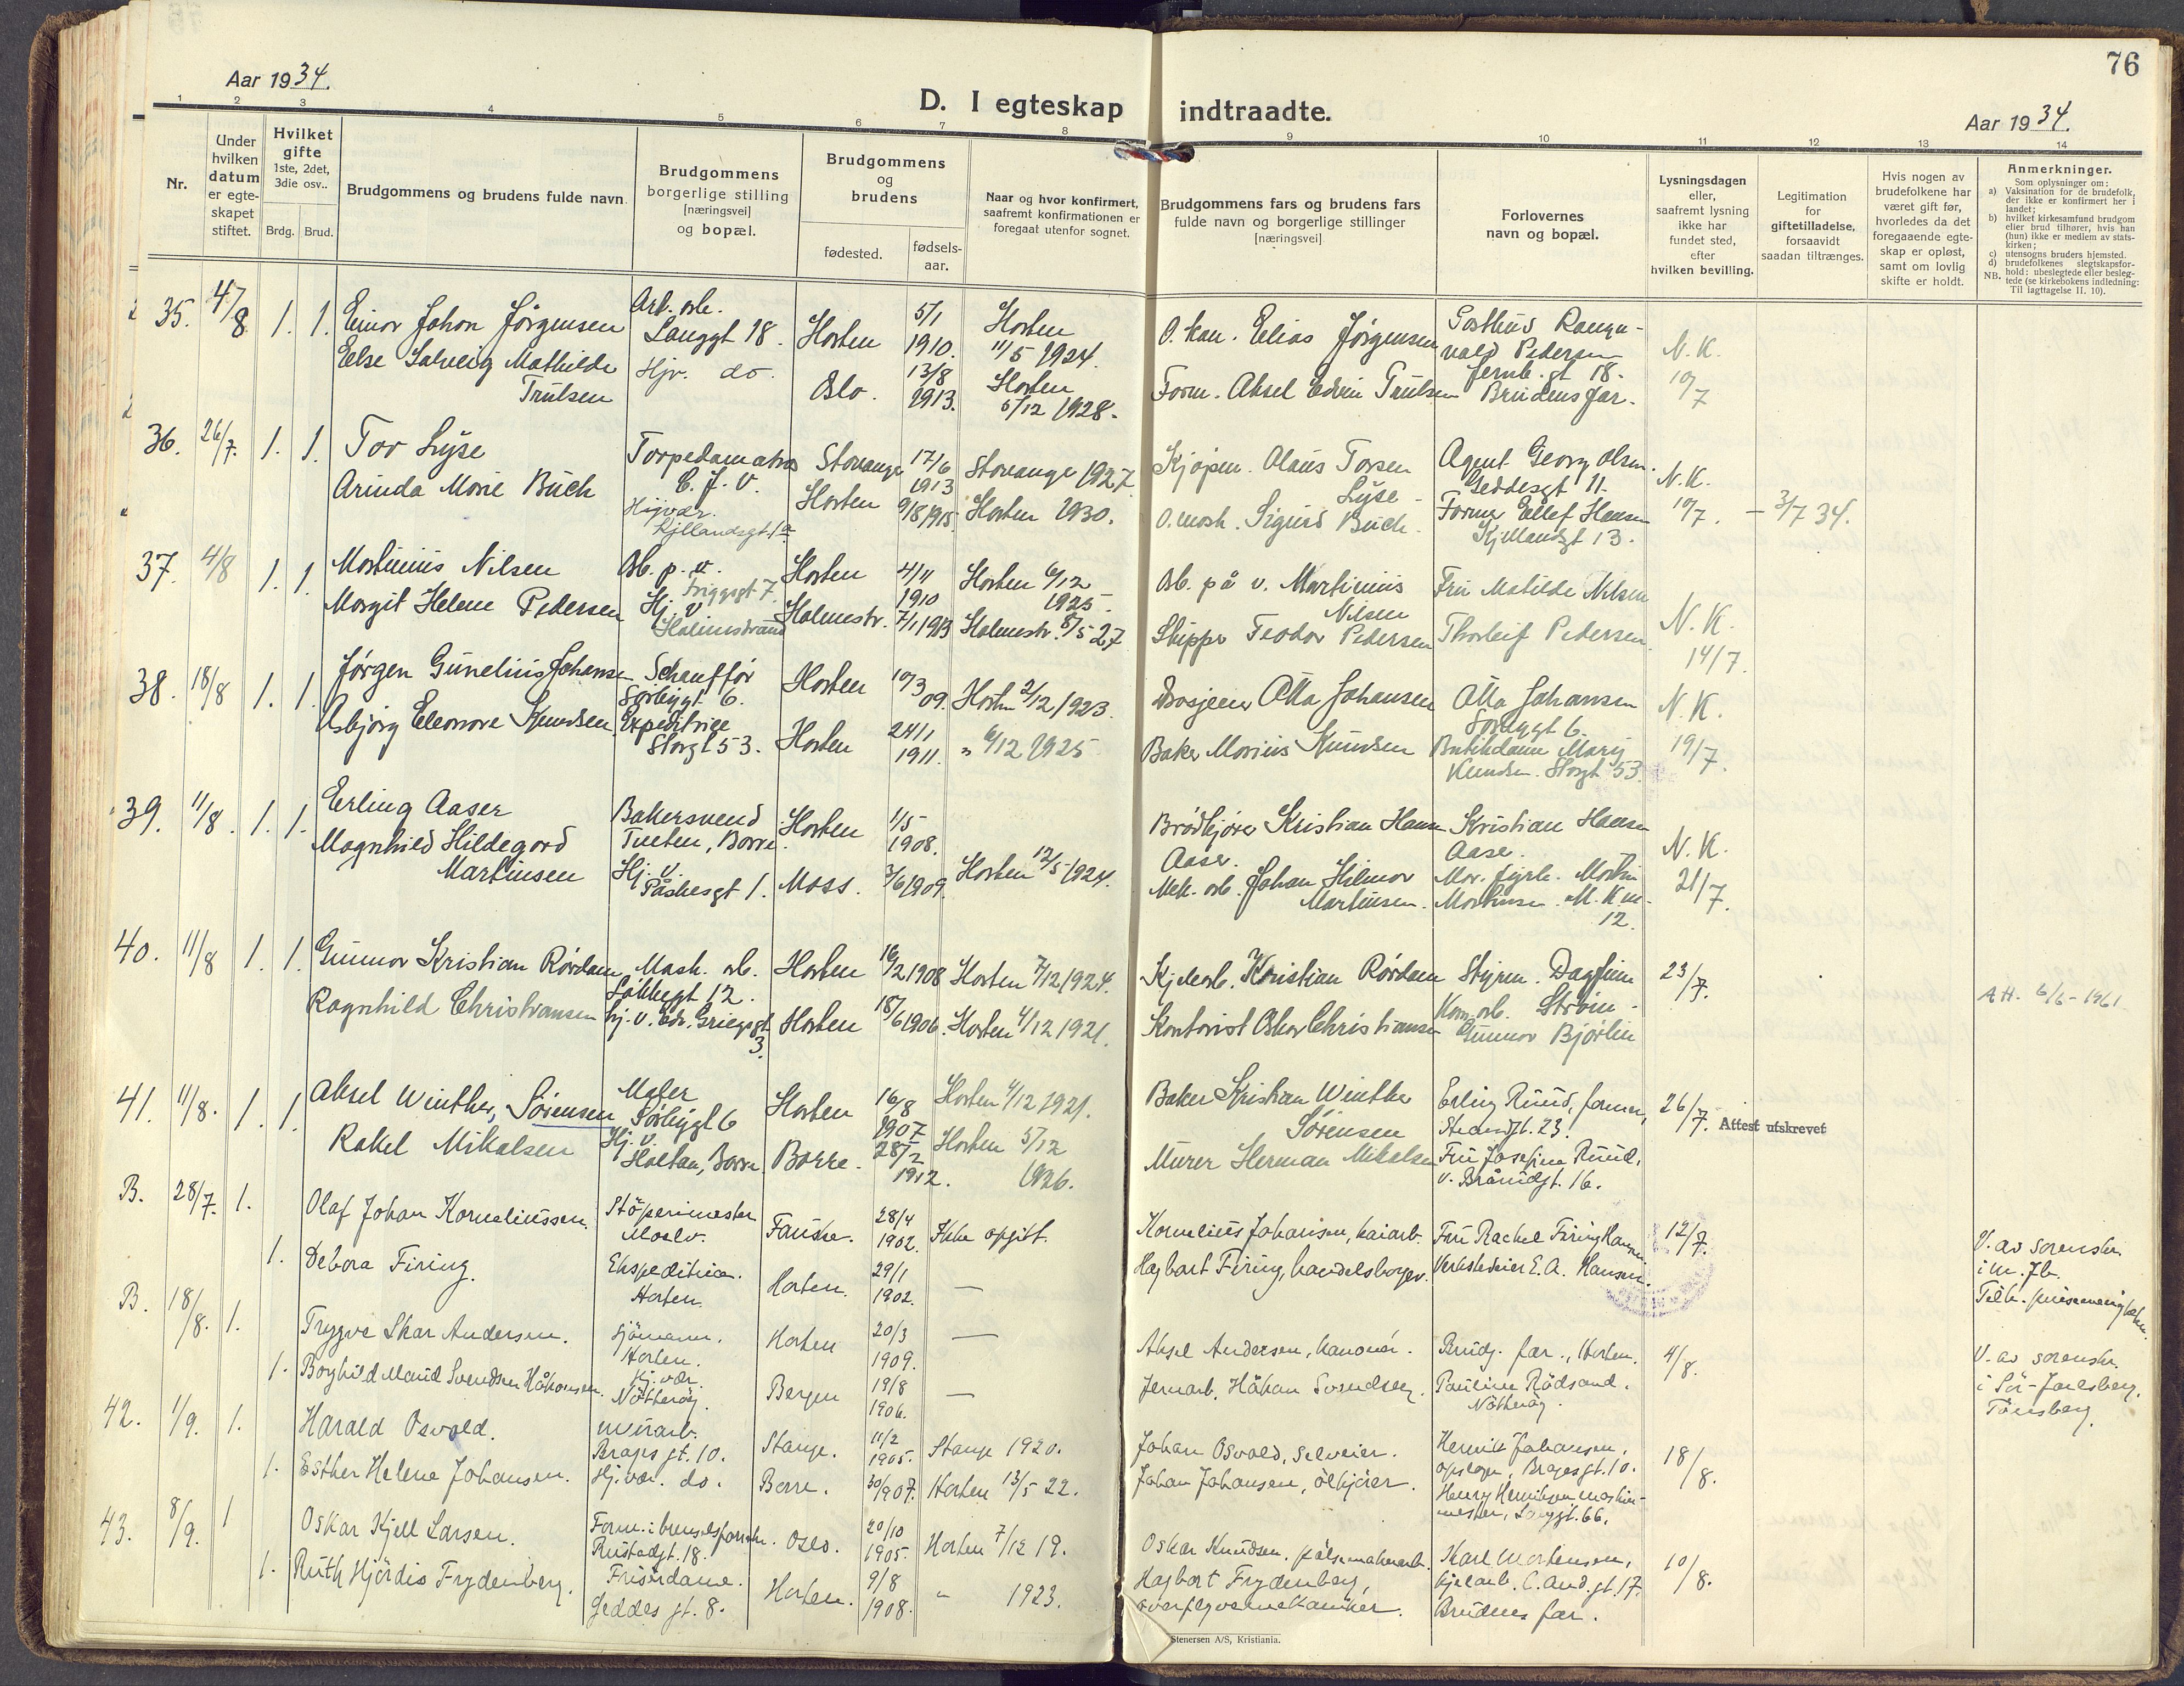 76
Aar 1934.
D. I egteskap indtraadte.
Aar 1934.
1 2 3 4 5 6 7 8 9 10 11 12 13 14
Nr.
Under hvilken datum er egteskapet stiftet.
Hvilket gifte 1ste, 2det, 3die osv..
Brdg. Brud.
Brudgommens og brudens fulde navn.
Brudgommens borgerlige stilling [næringsvei] og bopæl.
Brudgommens og brudens
fødested. fødselsaar.
Naar og hvor konfirmert, saafremt konfirmationen er foregaat utenfor sognet.
Brudgommens fars og brudens fars fulde navn og borgerlige stillinger [næringsvei]
Forlovernes navn og bopæl.
Lysningsdagen eller, saafremt lysning ikke har fundet sted, efter hvilken bevilling.
Legitimation for giftetilladelse, forsaavidt saadan tiltrænges.
Hvis nogen av brudefolkene har været gift før, hvorledes da det foregaaende egteskap er opløst, samt om lovlig skifte er holdt.
Anmerkninger.
Som oplysninger om:
a) Vaksination for de brudefolk, der ikke er konfirmert her i landet;
b) hvilket kirkesamfund brudgom eller brud tilhører, hvis han (hun) ikke er medlem av statskirken;
c) utensogns bruders hjemsted.
d) brudefolkenes slegtskapsforhold: ubeslegtede eller beslegtede (se kirkebokens indledning:
NB. Til iagttagelse II. 10).
35. 4/8 1. 1. Einar Johan Jörgensen
Arb.
Langgt 18. Horten 5/1 1910. Horten 11/5 1924.
Elias Jörgensen
Pedersen
Jernb.gt 18.
N.K. 10/7
Else Solveig Mathilde Trulsen
Hjv. do. Oslo. 13/8 1913. Horten 1928.
Form. Aksel Edvin Trulsen Brudens far.
36. 26/7. 1. 1. Tor Lyse
Torpedomatros Stavanger 17/6 1913 Stavanger 1927.
Kjøpm. Olaus Torsen Lyse
Agent Georg Olsen. Geddesgt 11.
N.K. 10/7. - 3/7 34.
Arinda Marie Buch
Hjvær. Horten 9/8 1915 Horten 1930.
Sigurd Buch.
Former Ellef Hansen
Kjellandsgt 13.
37. 4/8 1. 1. Martinius Nilsen
Arb. p. v. Friggsgt 7. Horten 4/11 1910 Horten 6/12 1925.
Arb. på v. Martinius Nilsen
Fru Matilde Nilsen
N.K. 14/7.
Margit Helene Pedersen
Hj. v. Holmestrand Holmestr. 7/1 1913 Holmestr. 8/5 27
Skipper Teodor Pedersen Thorleif Pedersen.
38. 18/8 1. 1. Jørgen Gunelius Johansen
Schauffør
Sørbygt 6. Horten 10/3 09. Horten 2/12 1923.
Drosjeeier Otto Johansen
Otto Johansen
Sørbygt 6.
N.K. 19/7.
Asbjørg Eleonore Knudsen
Expeditrice
Storgt 53. Horten 24/1 1911. " 6/12 1925
Baker Marius Knudsen
Butikdame Mary
Knudsen. Storgt 53.
39. 11/8. 1. 1. Erling Aaser
Bakersvend
Tueten, Borre. Horten 1/5 1908.
Brödkjører Kristian Hansen Aaser.
Kristian Hansen Aaser.
N.K. 21/7.
Magnhild Hildegard Martinsen
Hj. v.
Påskesgt 1. Moss. 3/6 1909. Horten 12/5 1924.
Mek. arb. Johan Hilmar Martinsen.
Mar. fyrb. Martin
Martinsen. 12.
40. 11/8 1. 1. Gunnar Kristian Rørdam
Mask. arb.
Løkkegt 12. Horten 16/2 1908 Horten 7/12 1924.
Kjelarb. Kristian Rørdam
Styrm. Dagfinn Strøm.
23/7.
AH. 6/6 - 1961
Ragnhild Christiansen
hj. v. Edv. Griegsgt 3. Horten 18/6 1906. Horten 4/12 1921.
Kontorist Oskar Christiansen
Gunnar Bjørlin
41. 11/8. 1. 1. Aksel Winther, Sørensen
Maler
Sørbygt 6 Horten 16/8 1907 Horten 4/12 1921.
Baker Kristian Winther Sørensen
Erling Ruud, former,
Strandgt. 23.
26/7. Attest utskrevet
Rakel Mikalsen
Hj. v.
Holtan, Borre. Borre. 28/2 1912. Horten 5/12 1926.
Murer Herman Mikalsen
Fru Josefine Ruud.
v. Bråndgt. 16.
B. 28/7. 1. Olaf Johan Korneliussen
Støperimester
Moelv. Fauske. 28/4 1902. Ikke opgitt.
Kornelius Johansen, kaiarb.
Fru Rachel Firing Hansen
12/7.
V. av sorenskr.
1. Debora Firing.
Ekspeditrice.
Horten. Horten. 29/1 1902. —
Hagbart Firing, handelsborger.
Verkstedeier E.A. Hansen.
B. 18/8. 1. Trygve Skar Andersen.
Sjömann.
Horten. Horten 20/3 1909. —
Aksel Andersen, kanonér.
Brudg. far., Horten.
4/8.
V. av sorenskr.
i Sör-Jarlsberg,
Tönsberg.
1. Borghild Maud Svendsen Håkonsen.
Hj. vær.
Nötteröy. Bergen 19/8 1906. —
Jernarb. Håkon Svendsen.
Pauline Rödsand.
Nötteröy.
42. 1/9. 1. Harald Osvald.
Murarb.
Brages gt. 10. Stange. 11/2 1905. Stange 1920.
Johan Osvald, selveier.
Henrik Johansen,
Brages gt. 10.
18/8.
1. Esther Helene Johansen.
Hj. vær. do. Borre. 1907. Horten 13/5 22.
Johan Johansen, ölkjörer.
Henry Henriksen maskinmester, Langgt. 66.
43. 8/9. 1 Oskar Kjell Larsen.
Rustadgt. 18. Oslo. 20/10 1905. Horten 7/12 19.
Oskar Knudsen, pölsemakerarb.
Karl Mortensen,
kjelarb. C. And. gt. 17.
10/8.
1. Ruth Hjördis Frydenberg.
Frisördame.
Geddes gt. 8. Horten. 9/8 1908. " 1923.
Hagbart Frydenberg,
Brudens far.
Stenersen A/S, Kristiania.